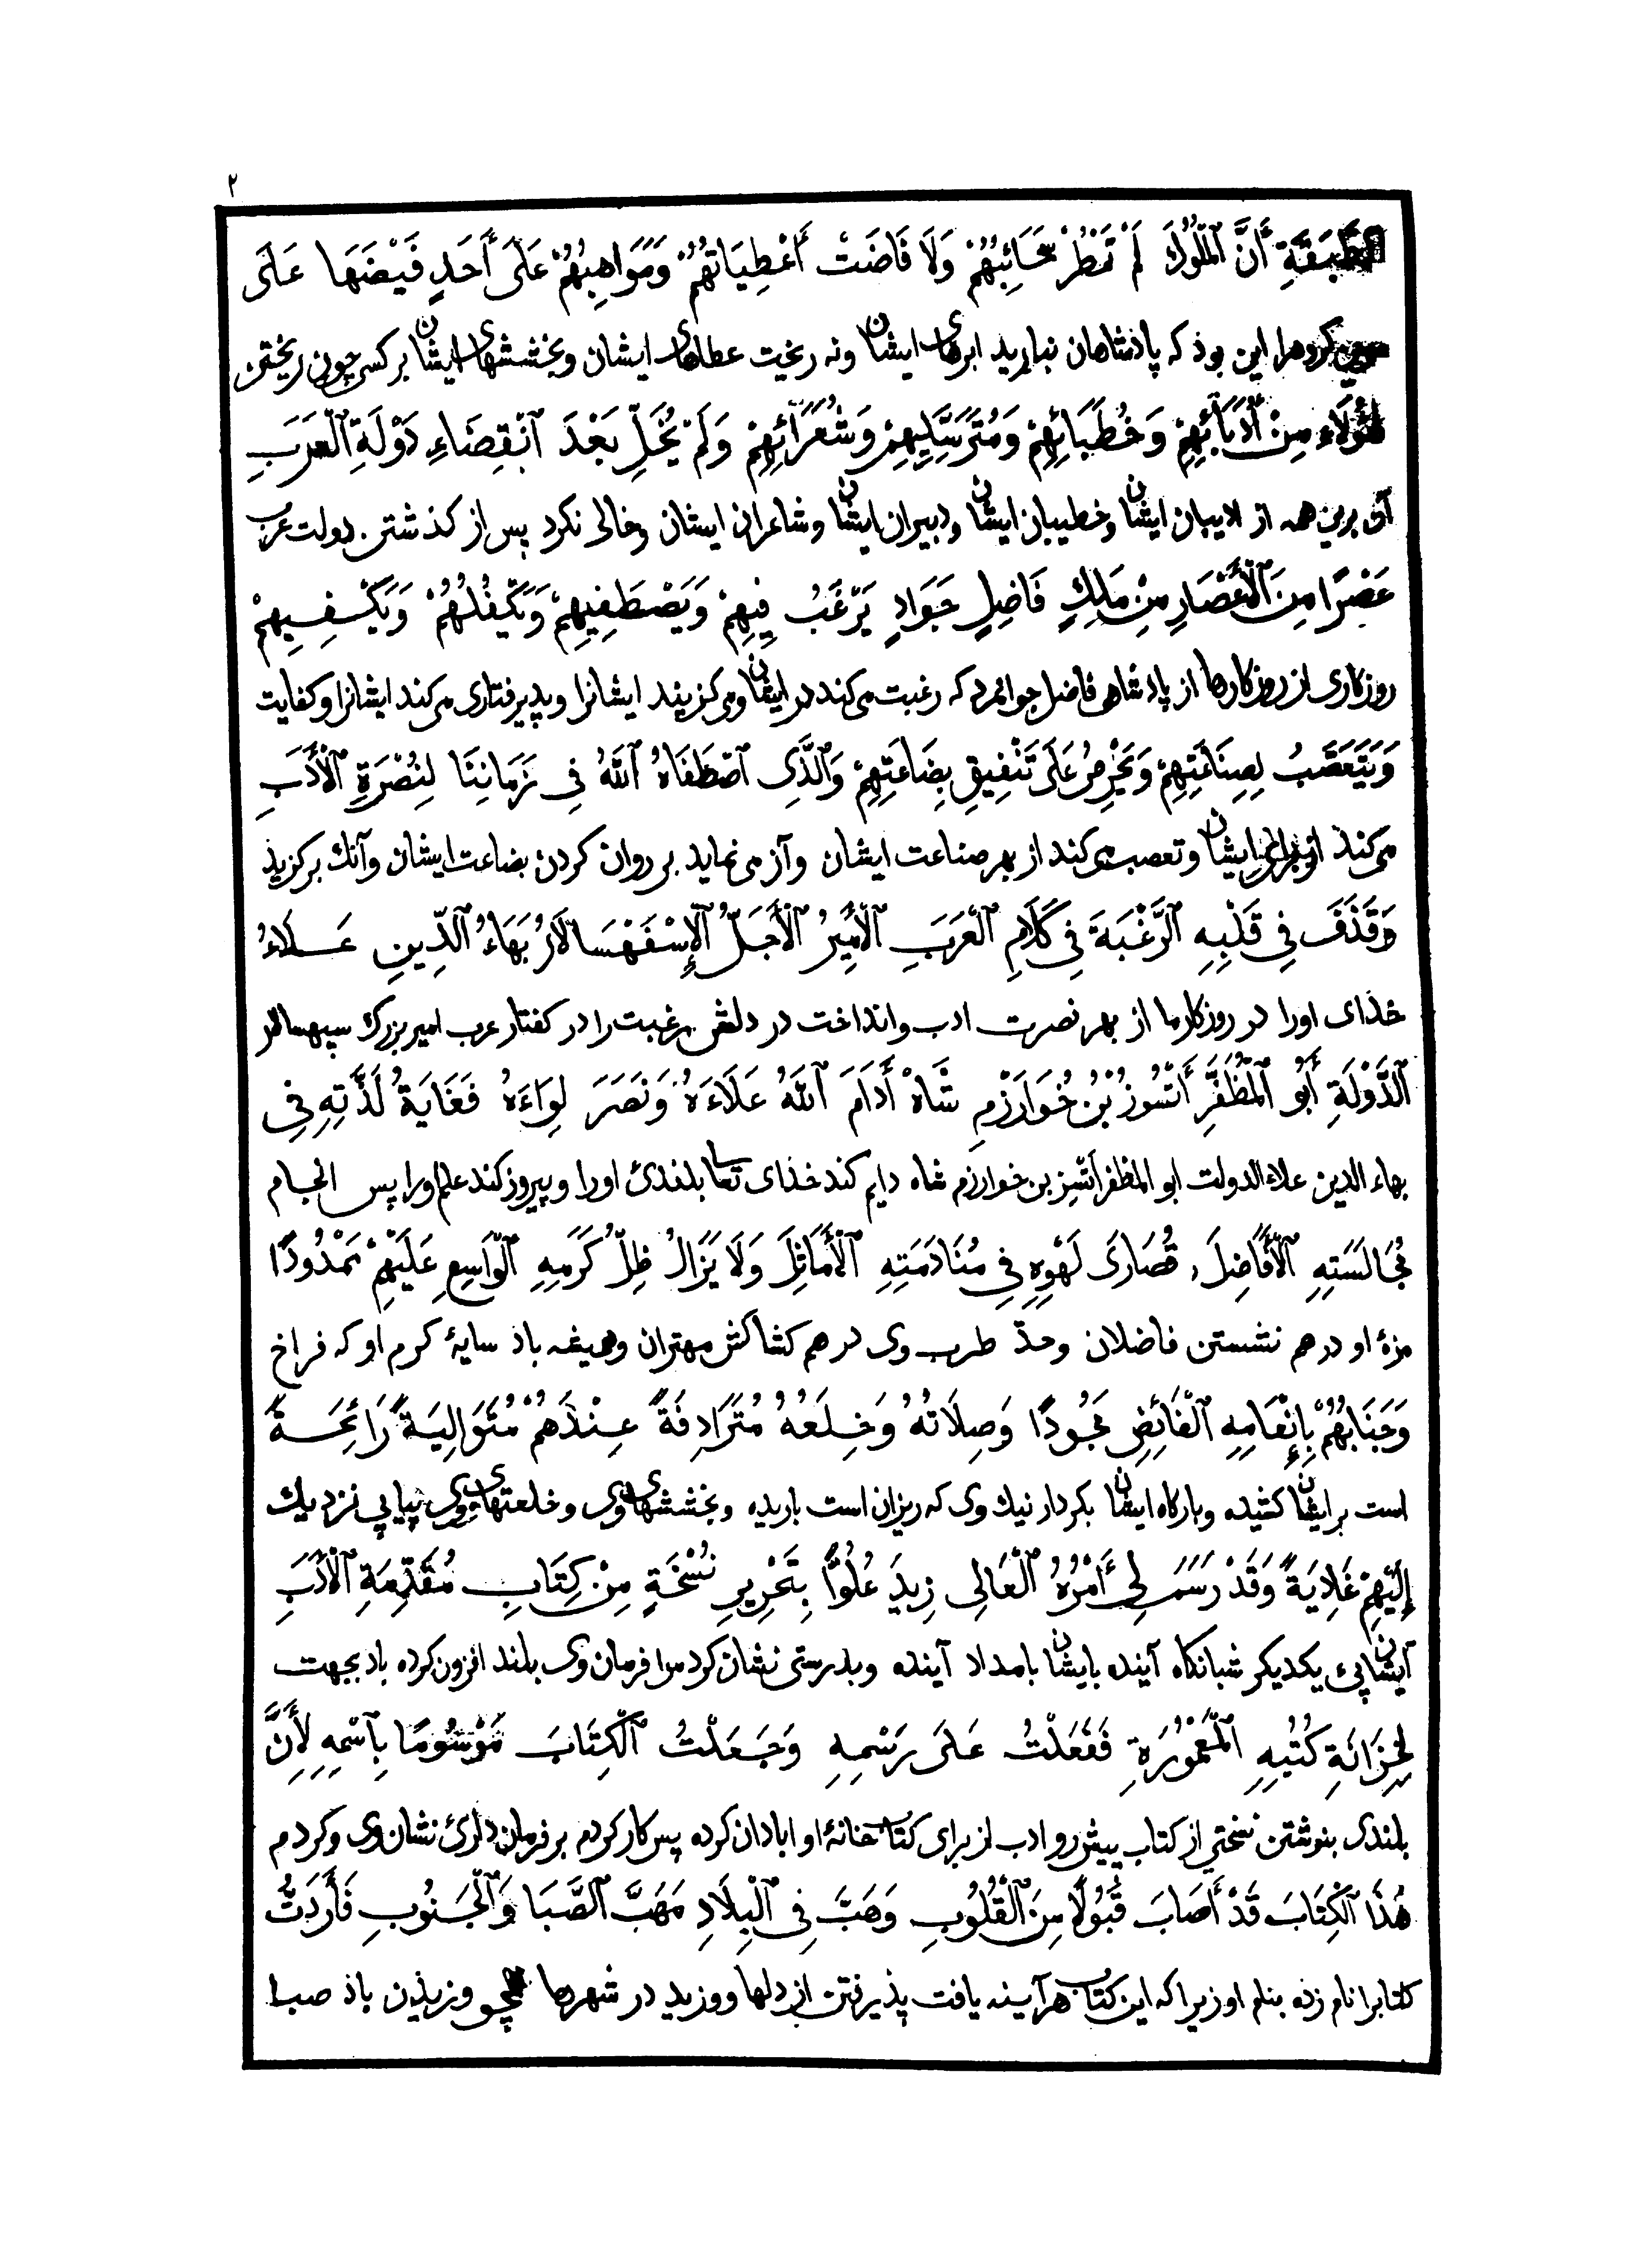 ٢
الطَّبَقَةِ أَنَّ ٱلْمُلُوكَ لَمْ تَمْطُرْ سَحَائِبُهُمْ وَلَا فَاضَتْ أَعْطِيَاتُهُمْ وَمَوَاهِبُهُمْ عَلَى أَحَدٍ فَيْضَهَا عَلَى
كروهرا اين بوذ كه پادشاهان نباريد ابرهاى ايشان ونه ريخت عطاهاى ايشان وبخششهاى ايشان بر كسى چون ريختن
هٰؤُلَاءِ مِنْ أُدَبَائِهِمْ وَخُطَبَائِهِمْ وَمُتَرَسِّلِيهِمْ وَشُعَرَائِهِمْ وَلَمْ يُخَلِّ بَعْدَ ٱنْقِضَاءِ دَوْلَةِ ٱلْعَرَبِ
آن برين همه از اديبان ايشان وخطيبان ايشان ودبيران ايشان وشاعران ايشان وخالى نكرد پس از كذشتن دولت عرب
عَصْرًا مِنَ ٱلْأَعْصَارِ مِنْ مَلِكٍ فَاضِلٍ جَوَادٍ يَرْغَبُ فِيهِمْ وَيَصْطَفِيهِمْ وَيَكْفُلُهُمْ وَيَكْفِيهِمْ
روزكارى از روزكارها از پادشاهى فاضل جوانمرد كه رغبت مى‌كند در ايشان ومى كزيند ايشانرا وپديرفتارى مى‌كند ايشانرا وكفايت
وَيَتَعَصَّبُ لِصِنَاعَتِهِمْ وَيَحْرِصُ عَلَى تَنْفِيقِ بِضَاعَتِهِمْ وَٱلَّذِى ٱصْطَفَاهُ ٱللّٰهُ فِى زَمَانِنَا لِنُصْرَةِ ٱلْأَدَبِ
مى‌كند ايشان وتعصب مى‌كند از بهر صناعت ايشان وآز مى نمايد بر روان كردن بضاعت ايشان وآنك بركزيذ
وَقَذَفَ فِى قَلْبِهِ ٱلرَّغْبَةَ فِى كَلَامِ ٱلْعَرَبِ ٱلْأَمِيرُ ٱلْأَجَلُّ ٱلْإِسْفَهْسَالَارُ بَهَاءُ ٱلدِّينِ عَلَاءُ
خذاى اورا در روزكار ما از بهر نصرت ادب وانداخت در دلش رغبت را در كفتار عرب امير بزرك سپهسالار
ٱلدَّوْلَةِ أَبُو ٱلْمُظَفَّرِ أَتْسُوزُ بْنُ خُوَارَزْمِ شَاهْ أَدَامَ ٱللّٰهُ عَلَاءَهُ وَنَصَرَ لِوَاءَهُ فَغَايَةُ لَذَّتِهِ فِى
بهاء الدين علاء الدولت ابو المظفر اتسز بن خوارزم شاه دايم كند خذاى تعا بلندئ اورا وپيروز كند علم اورا پس انجام
مُجَالَسَتِهِ ٱلْأَفَاضِلَ، قُصَارَى لَهْوِهِ فِى مُنَادَمَتِهِ ٱلْأَمَاثِلَ وَلَا يَزَالُ ظِلُّ كَرَمِهِ ٱلْوَاسِعِ عَلَيْهِمْ مَمْدُودًا
مزۀ او در هم نشستن فاضلان وحدّ طرب وى در هم كشاكش مهتران وهميشه باذ سايۀ كرم او كه فراخ
وَجَنَابُهُمْ بِإِنْعَامِهِ ٱلْفَائِضِ مَجُودًا وَصِلَاتُهُ وَخِلَعُهُ مُتَرَادِفَةً عِنْدَهُمْ مُتَوَالِيَةً رَائِحَةً
است بر ايشان كشيده وباركاه ايشان بكردار نيك وى كه ريزان است باريده وبخششهاى وى وخلعتهاى وى پياپي نزديك
إِلَيْهِمْ غَادِيَةً وَقَدْ رَسَمَ لِى أَمْرُهُ ٱلْعَالِى زِيدَ عُلُوًّا بِتَحْرِيرِ نُسْخَةٍ مِنْ كِتَابِ مُقَدِّمَةِ ٱلْأَدَبِ
ايشان پىء يكديكر شبانكاه آينده بايشان بامداد آينده وبدرستى نشان كرد مرا فرمان وى بلند افزون كرده باد بجهت
لِخِزَانَةِ كُتُبِهِ ٱلْمَعْمُورَةِ فَفَعَلْتُ عَلَى رَسْمِهِ وَجَعَلْتُ ٱلْكِتَابَ مَوْسُومًا بِٱسْمِهِ لِأَنَّ
بلندى بنوشتن نسختي از كتاب پيش رو ادب از براى كتاب خانۀ او ابادان كرده پس كار كردم بر فرمان دارئ نشان وى وكردم
هٰذَا ٱلْكِتَابَ قَدْ أَصَابَ قَبُولًا مِنَ ٱلْقُلُوبِ وَهَبَّ فِى ٱلْبِلَادِ مَهَبَّ ٱلصَّبَا وَٱلْجَنُوبِ فَأَرَدتُّ
كتابرا نام زده بنام او زيرا كه اين كتاب هر آيينه يافت پذيرفتن از دلها ووزيد در شهرها همچو وزيذن باذ صبا